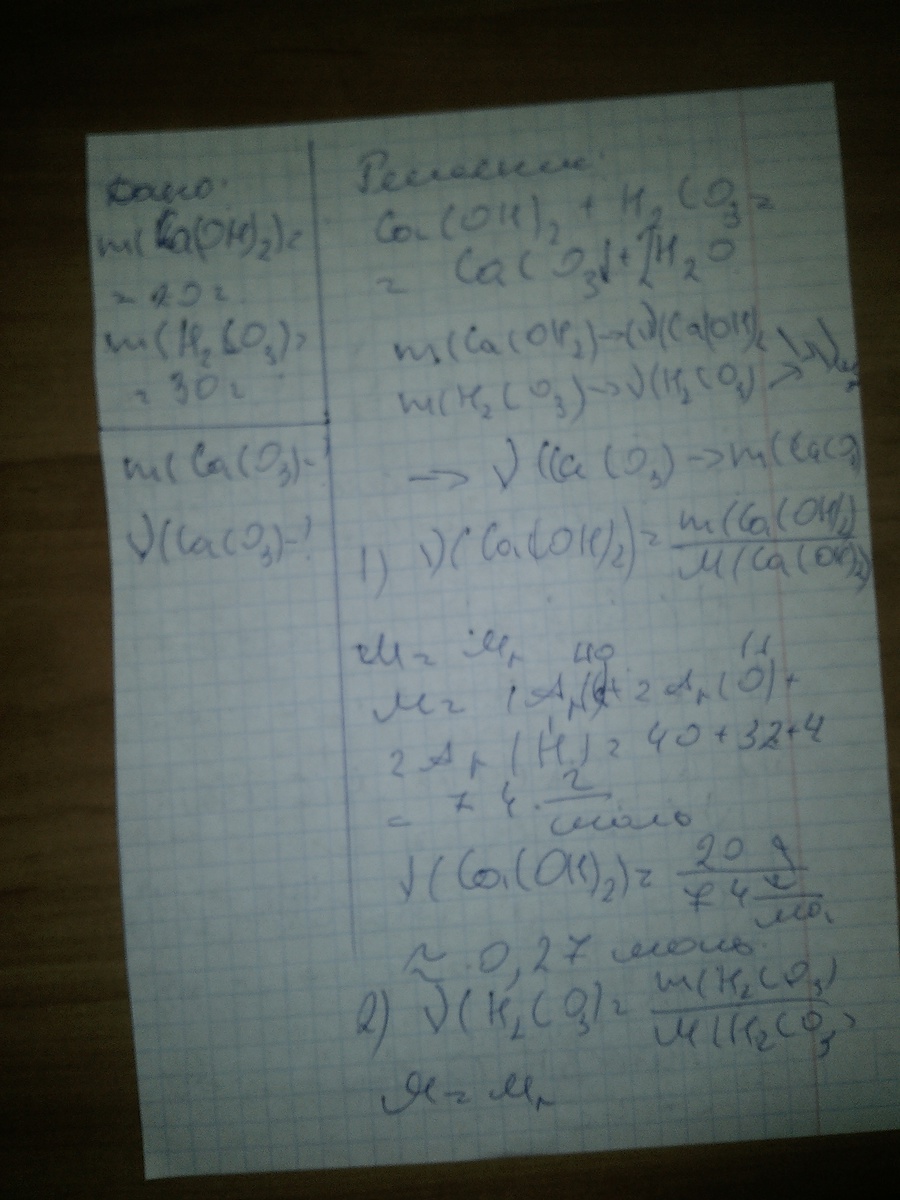 Дано:
m(Ca(OH)2)=
= 20г
m(H2CO3)=
= 30г
m(CaCO3)-?
ν(CaCO3)-?
Решение:
Ca(OH)2 + H2CO3 =
= CaCO3↓+2H2O
m(Ca(OH)2)→ν(Ca(OH)2
m(H2CO3)→ν(H2CO3)
→ ν(CaCO3)→m(CaCO3)
1) ν(Ca(OH)2)= m(Ca(OH)2) / M(Ca(OH)2)
M= Mr
M= 1Ar(Ca)+2Ar(O)+
2Ar(H)= 40+32+4
= 74 г/моль
ν(Ca(OH)2)= 20 г / 74 г/моль
≈ 0,27 моль
2) ν(H2CO3)= m(H2CO3) / M(H2CO3)
M= Mr